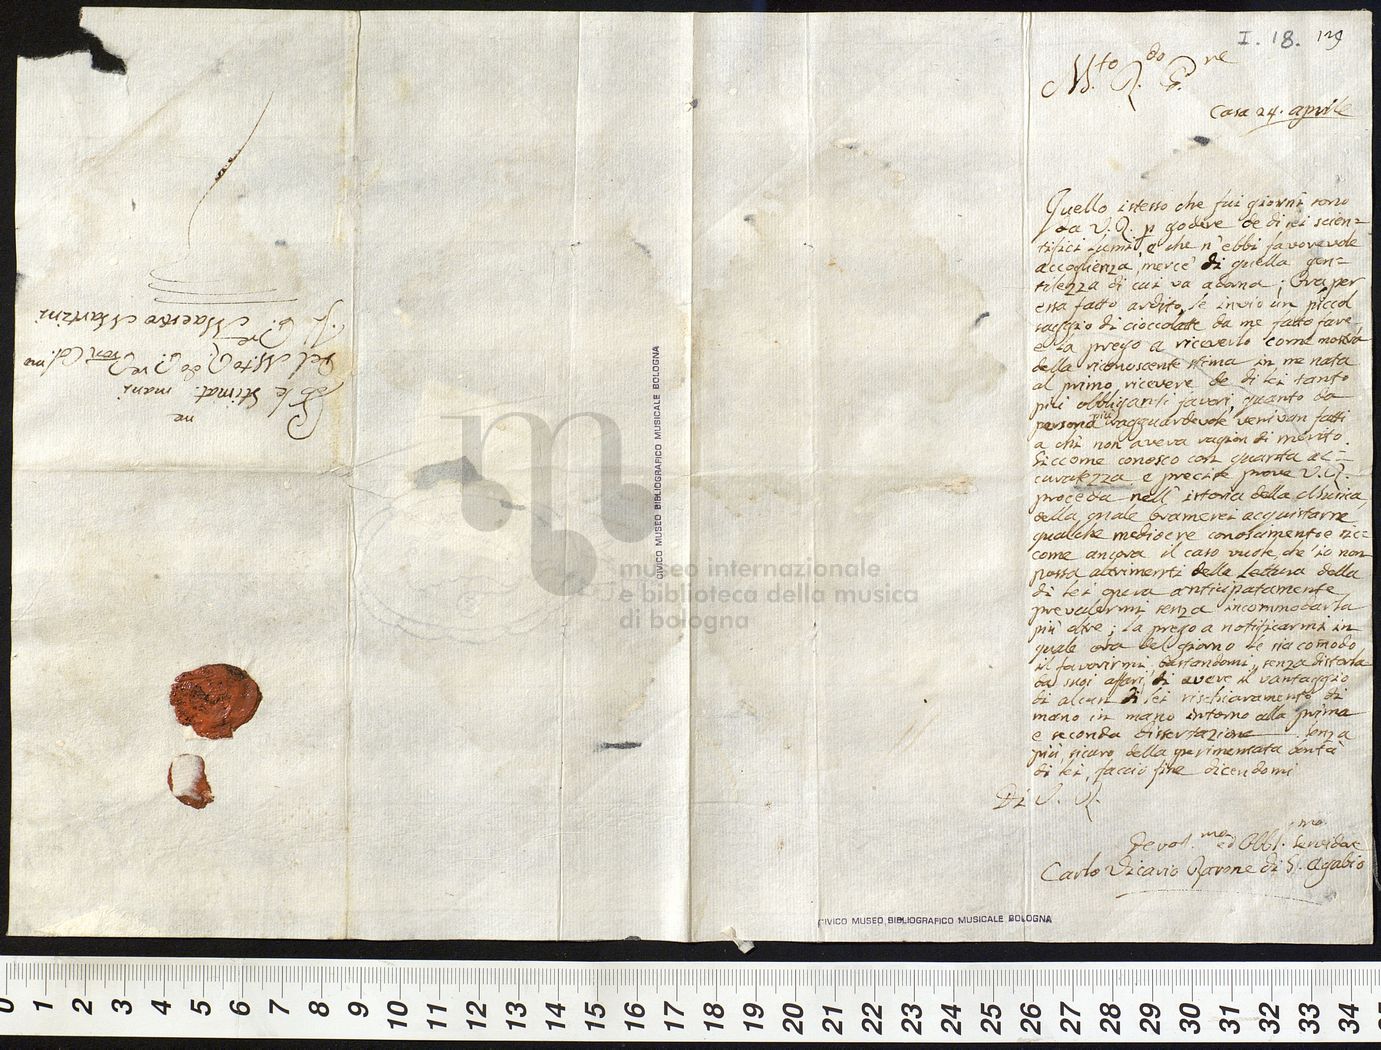 I. 18. 129
M.to R.do P.re
Casa 24. aprile
Quello istesso che fui giorni sono
da V. R. p godere de di lei scien=
tifici lumi, e che n'ebbi favorevole
accoglienza, mercè di quella gen=
tilezza di cui va adorna; Ora per
essa fatto ardito, le invio un piccol
saggio di cioccolatte da me fatto fare,
e la prego a riceverlo come mostra
della riconoscente stima in me nata
al primo ricevere de di lei tanto
più obbliganti favori, quanto da
persona più ragguardevole venivan fatti
a chi non aveva ragion di merito.
Siccome conosco con quanta ac=
curatezza e precise prove V. R.
proceda nell'istoria della Musica,
della quale bramerei acquistarne
qualche mediocre conoscimento e sic=
come ancora il caso vuole, ch'io non
possa altrimenti della lettura della
di lei opera anticipatamente
prevalermi senza incommodarla
più oltre; la prego a notificarmi in
quale ora del giorno le sia comodo
il favorirmi, bastandomi, senza distorla
da suoi afari, di avere il vantaggio
di alcun di lei rischiaramento di
mano in mano intorno alla prima
e seconda dissertazione. Senza
più, sicuro della sperimentata bontà
di lei, faccio fine dicendomi
Di V. R.
Devot.mo ed Obbl.mo Servidore
Carlo Vicario Barone di S. Agabio
P le stimat.me mani
Del M.to R.do P.re Pron Col.mo
Il P.re Maestro Martini
CIVICO MUSEO BIBLIOGRAFICO MUSICALE BOLOGNA
CIVICO MUSEO BIBLIOGRAFICO MUSICALE BOLOGNA
museo internazionale
e biblioteca della musica
di bologna
0 1 2 3 4 5 6 7 8 9 10 11 12 13 14 15 16 17 18 19 20 21 22 23 24 25 26 27 28 29 30 31 32 33 34